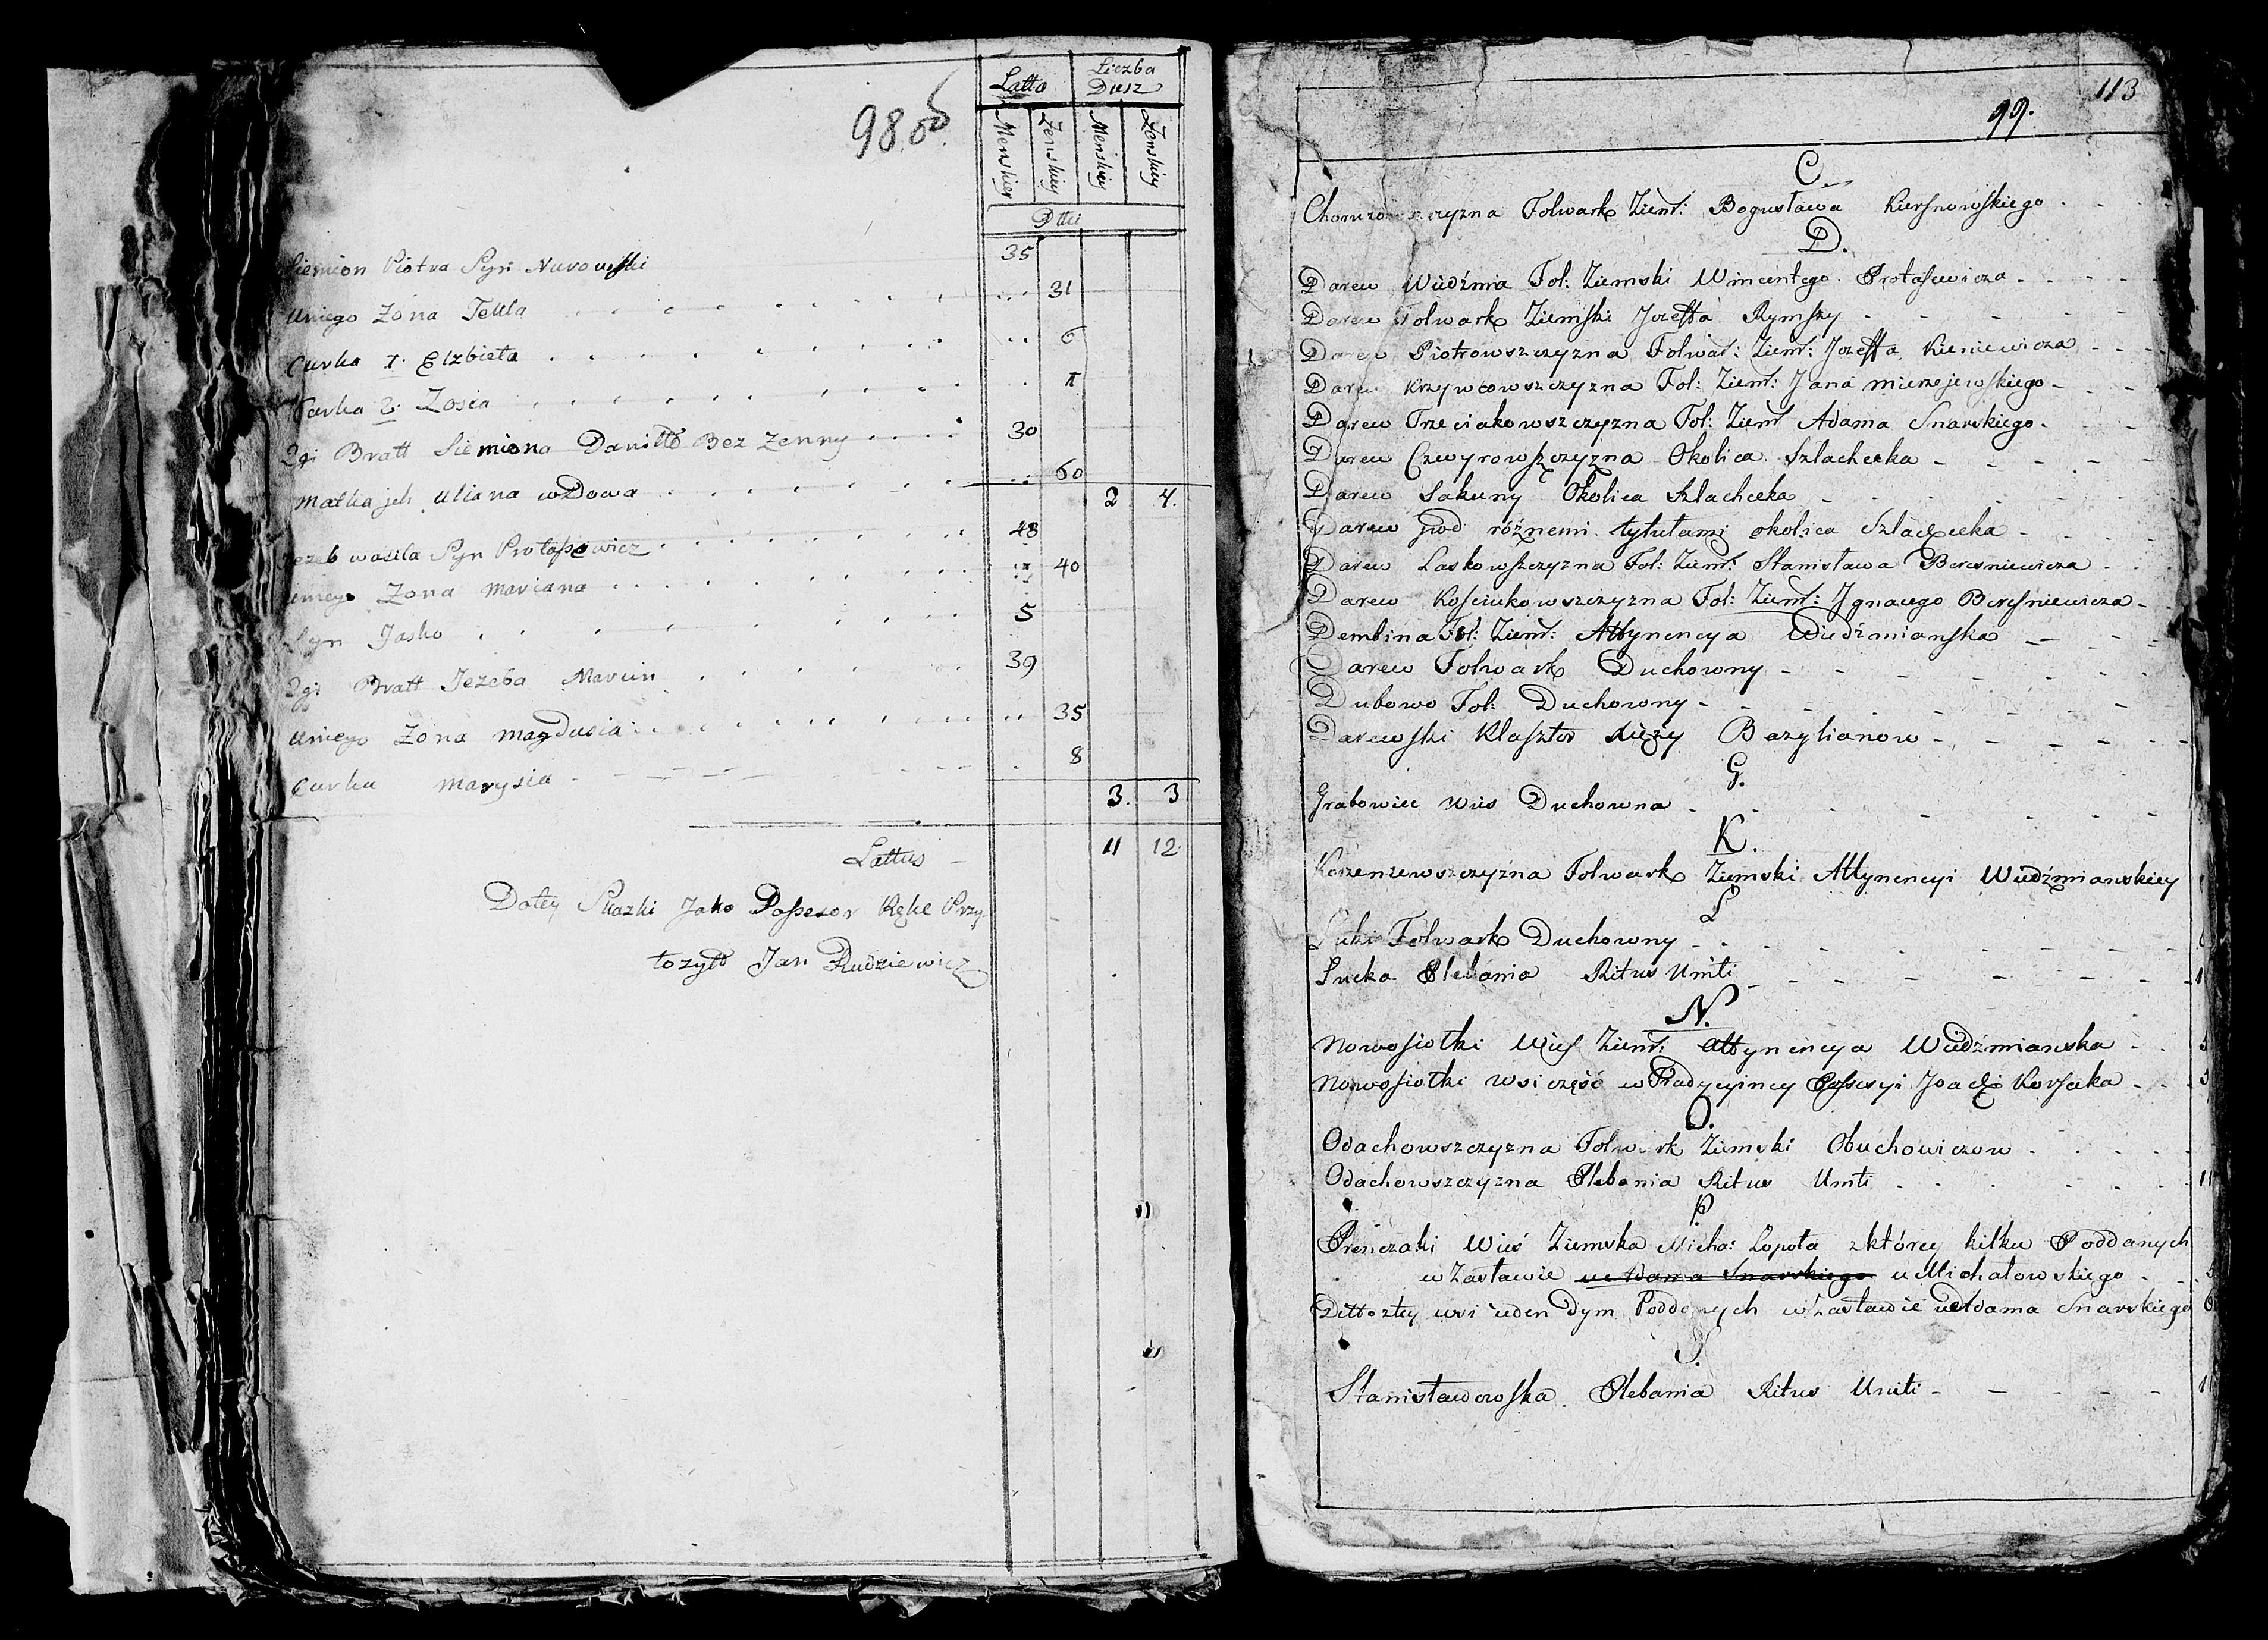 98. об.
Latta Liczba Dusz
Menskiey Zenskiey Menskiey Zenskiey
Dtti
Siemion Piotra Syn Nurowski 35
Uniego Zona Tekla 31
Curka 1. Elzbieta 6
Curka 2. Zosia 1
2gi Bratt Siemiona Daniłło Bez Zenny 30
Matka jch Uliana wdowa 60
2 4.
Jezeb Wasila Syn Protasewicz 48
Uniego Zona Mariana 40
Syn Jasko 5
2gi Bratt Jezeba Marcin 39
Uniego Zona Magdusia 35
Curka Marysia 8
3. 3
Lattus 11 12
Dotey Skazki Jako Possesor Rękę Przy
łozyłł Jan Rudziewicz
113
99.
C.
Folwark Ziems: Bogusława Kiersnowskiego
D.
Darew Wiedźmia Fol: Ziemski Wincentego Protasewicza
Darew Folwark Ziemski Jozeffa Rymszy
Darew Piotrowszczyzna Folwar: Ziems: Jozeffa Kieniewicza
Darew Krzywcowszczyzna Fol: Ziems: Jana Mierzejewskiego
Darew Trzeciakowszczyzna Fol: Ziems Adama Snarskiego
Darew Czwyrowszczyzna Okolica Szlachecka
Darew Sakuny Okolica Szlachecka
Darew pod róźnemi tytułami okolica Szlachecka
Darew Laskowszczyzna Fol: Ziems: Stanisława Beresniewicza
Darew Kosciukowszczyzna Fol: Ziems: Jgnacego Beresniewicza
Dembina Fol: Ziems: Attynencya Wiedźmianska
Darew Folwark Duchowny
Dubowo Fol: Duchowny
Darewski Klasztor Xięży Bazylianow
G.
Grabowiec Wies Duchowna
K.
Korzeniewszczyzna Folwark Ziemski Attynencyi Wiedźmianskiey
Ł
Łuki Folwark Duchowny
Łucka Plebania Ritus Uniti
N.
Nowosiołki Wies Ziems: Attynencya Wiedźmianska
Nowosiołki wsi część w Tradycyiney Possesyi Joach Korsaka
O.
Odachowszczyzna Folwark Ziemski Obuchowiczow
Odachowszczyzna Plebania Ritus Uniti
P
Prenczaki Wieś Ziemska Micha: Łopota zktórey kilku Poddanych
w Zastawie u Adama Snarskiego u Michałowskiego
Ditto ztey wsi ieden Dym Poddanych w Zastawie u Adama Snarskiego
S.
Stanisławowska Plebania Ritus Uniti